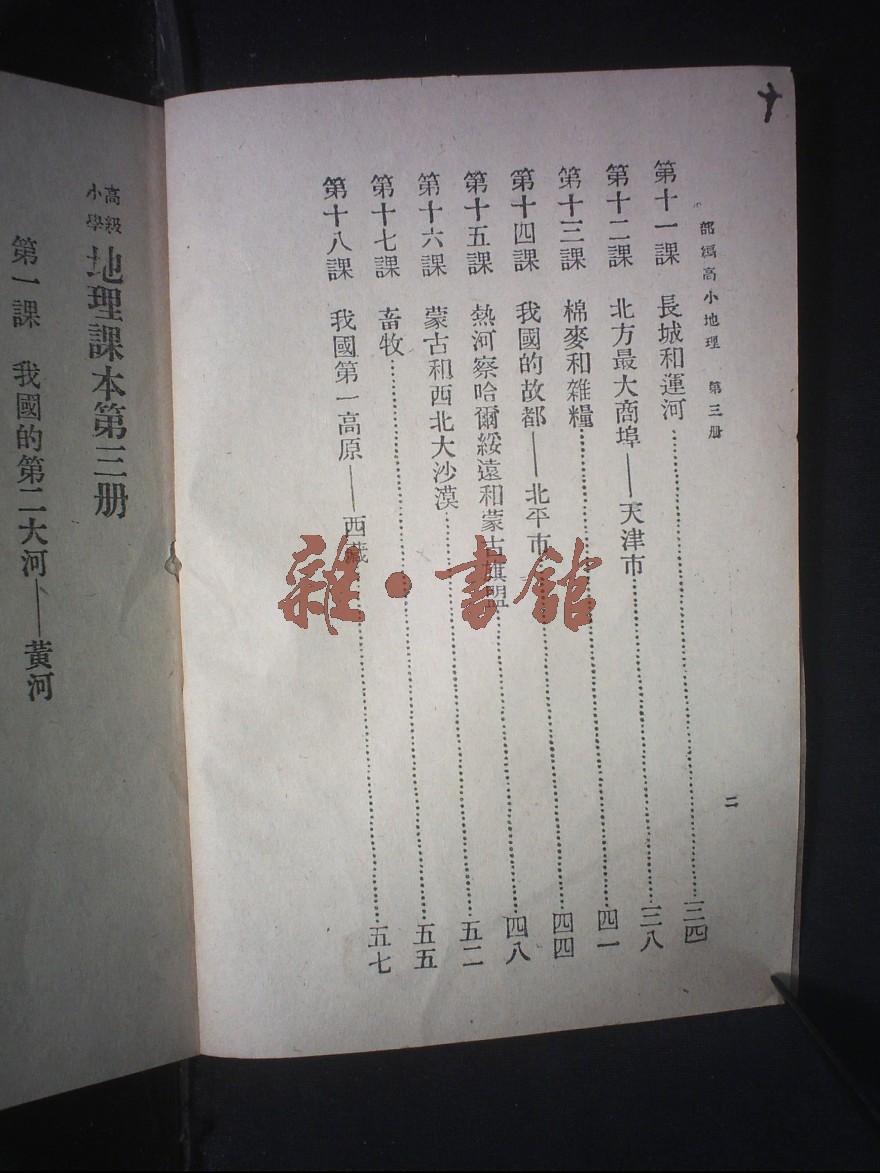 部編高小地理 第三册
二
第十一課 長城和運河……三四
第十二課 北方最大商埠——天津市……三八
第十三課 棉麥和雜糧……四一
第十四課 我國的故都——北平市……四四
第十五課 熱河察哈爾綏遠和蒙古旗盟……四八
第十六課 蒙古和西北大沙漠……五二
第十七課 畜牧……五五
第十八課 我國第一高原——西藏……五七
高級小學 地理課本第三册
第一課 我國的第二大河——黃河
雜·書館